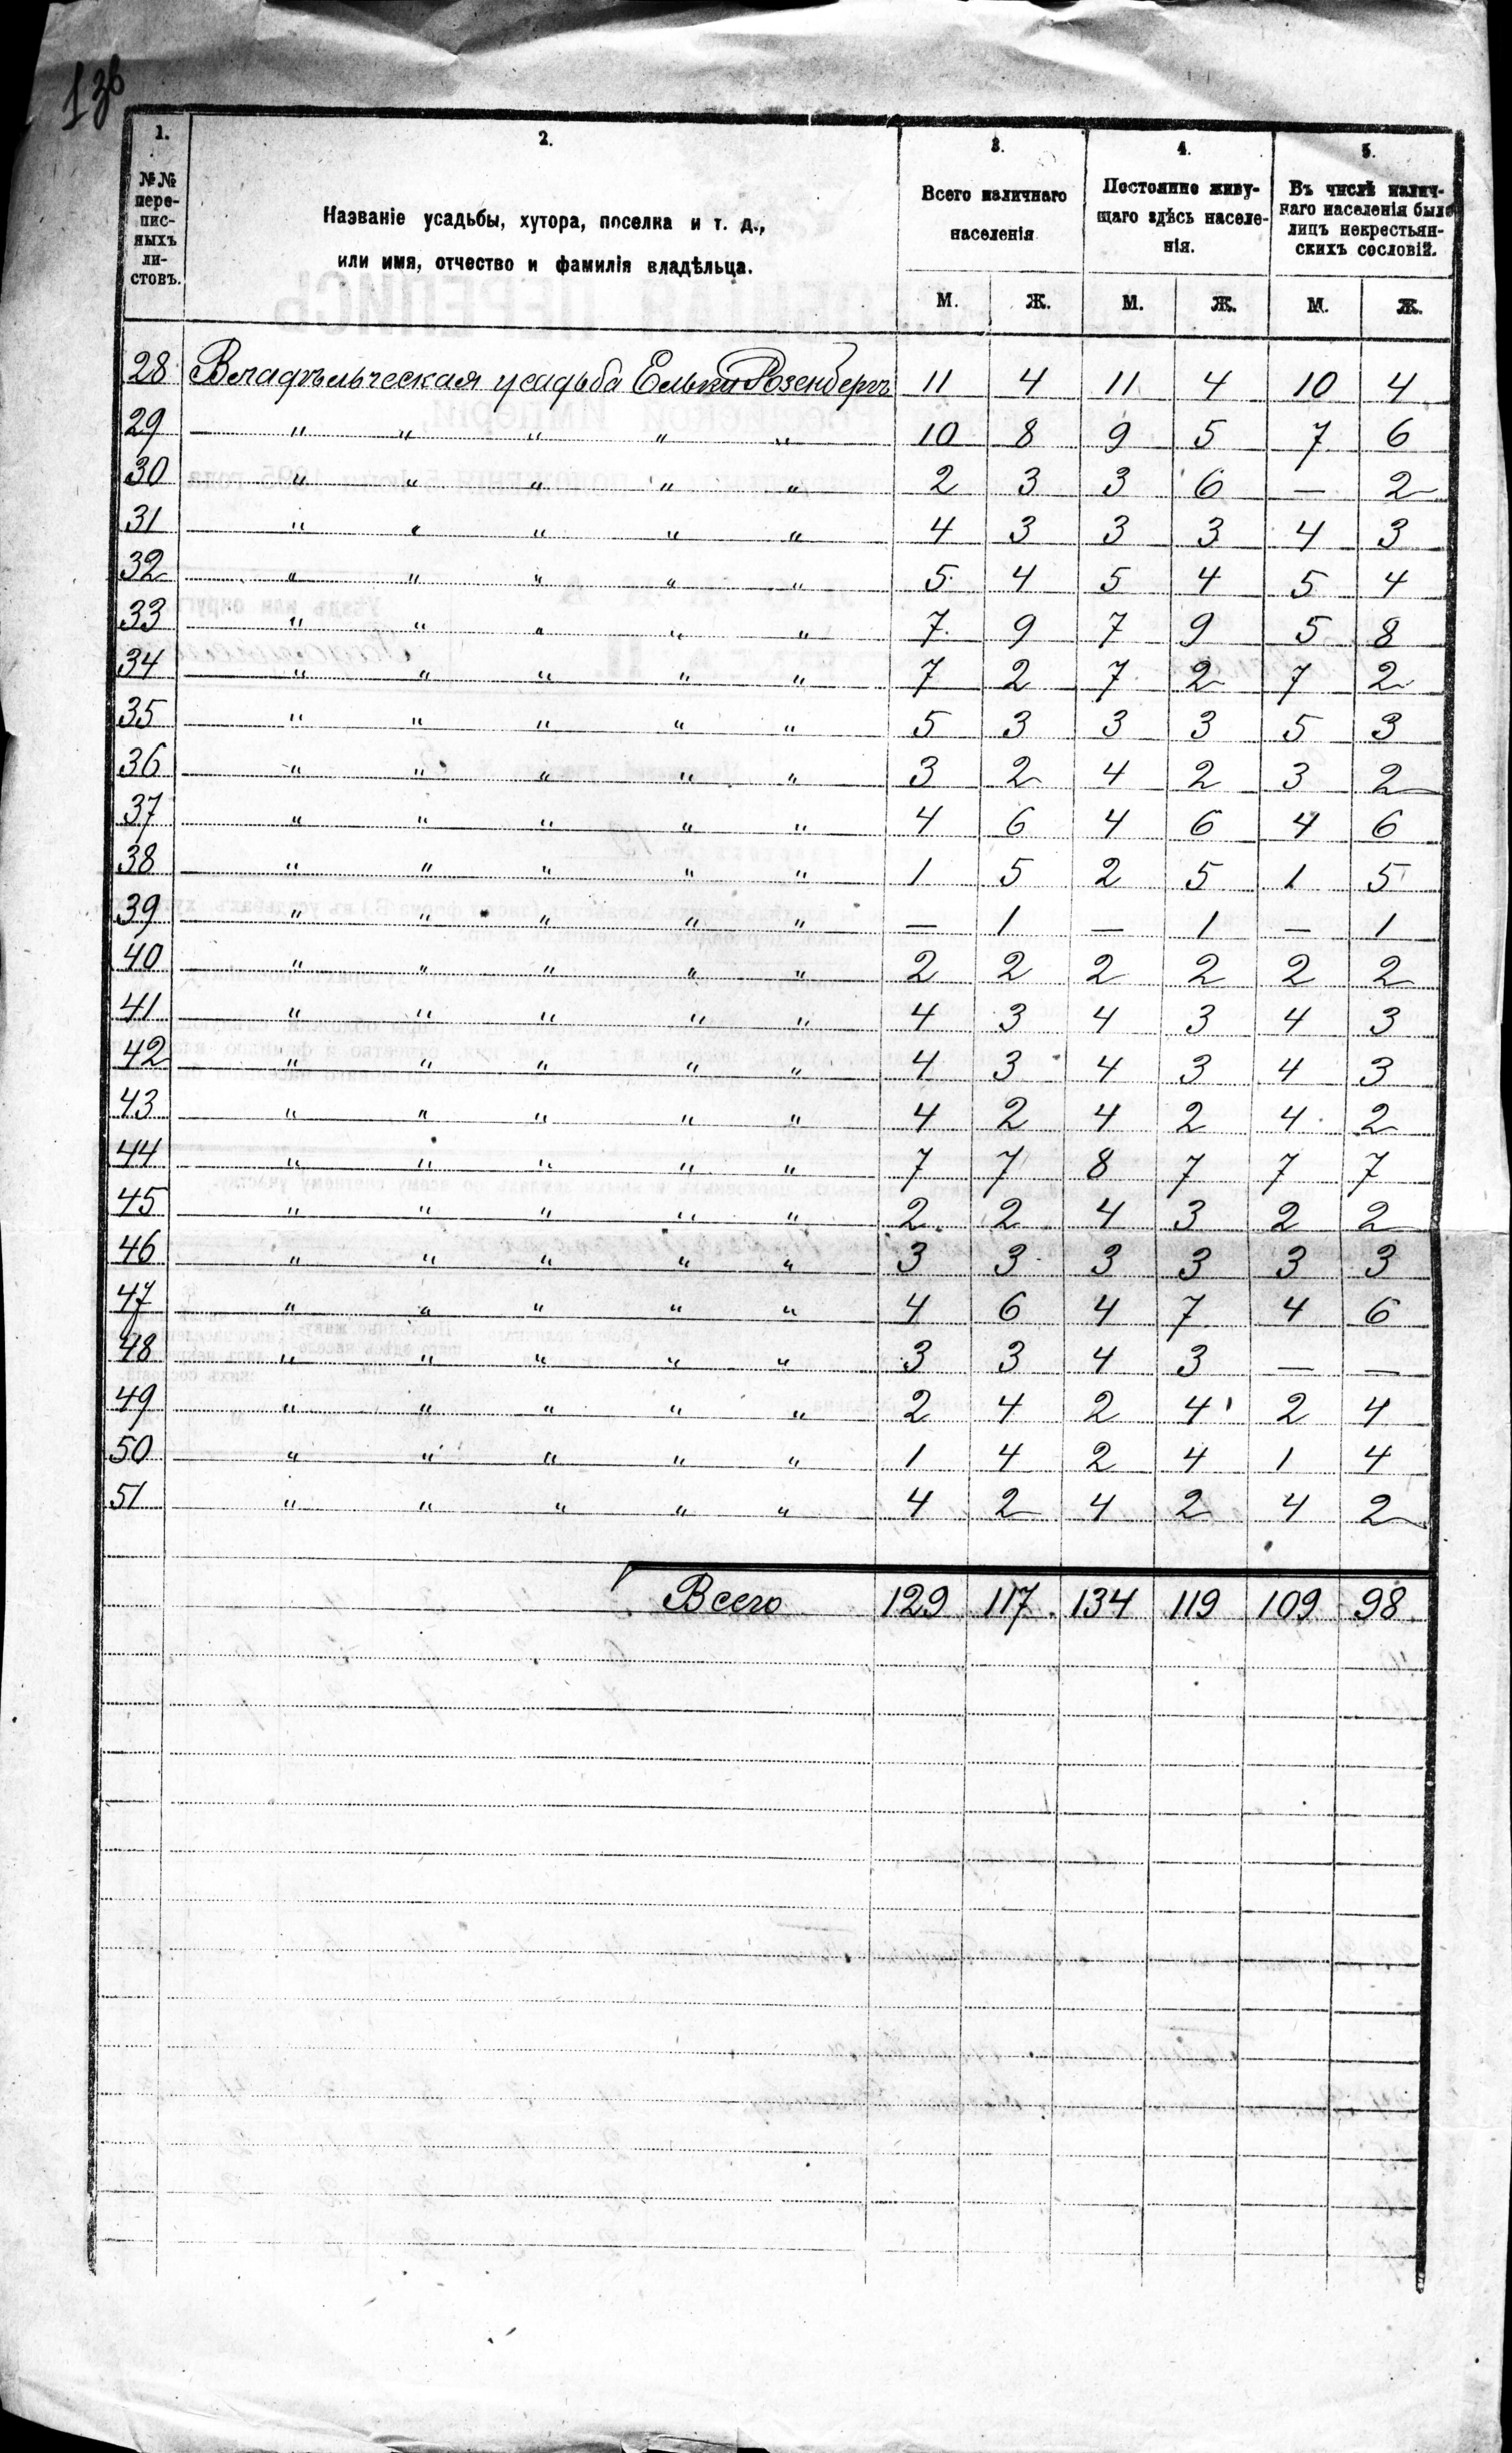 136
1. 2. 3. 4. 5.
№№ пере-писныхъ ли-стовъ.
Названіе усадьбы, хутора, поселка и т. д.,
или имя, отчество и фамилія владѣльца.
Всего наличнаго
населенія
Постоянно живу-
щаго здѣсь населе-
нія.
Въ числѣ налич-
наго населенія было
лицъ некрестьян-
скихъ сословій.
М. Ж. М. Ж. М. Ж.
28 Владѣльческая усадьба Елька Розенбергъ 11 4 11 4 10 4
29 " " " " " 10 8 9 5 7 6
30 " " " " " 2 3 3 6 — 2
31 " " " " " 4 3 3 3 4 3
32 " " " " " 5 4 5 4 5 4
33 " " " " " 7 9 7 9 5 8
34 " " " " " 7 2 7 2 7 2
35 " " " " " 5 3 3 3 5 3
36 " " " " " 3 2 4 2 3 2
37 " " " " " 4 6 4 6 4 6
38 " " " " " 1 5 2 5 1 5
39 " " " " " — 1 — 1 — 1
40 " " " " " 2 2 2 2 2 2
41 " " " " " 4 3 4 3 4 3
42 " " " " " 4 3 4 3 4 3
43 " " " " " 4 2 4 2 4 2
44 " " " " " 7 7 8 7 7 7
45 " " " " " 2 2 4 3 2 2
46 " " " " " 3 3 3 3 3 3
47 " " " " " 4 6 4 7 4 6
48 " " " " " 3 3 4 3 — —
49 " " " " " 2 4 2 4 2 4
50 " " " " " 1 4 2 4 1 4
51 " " " " " 4 2 4 2 4 2
Всего 129 117 134 119 109 98